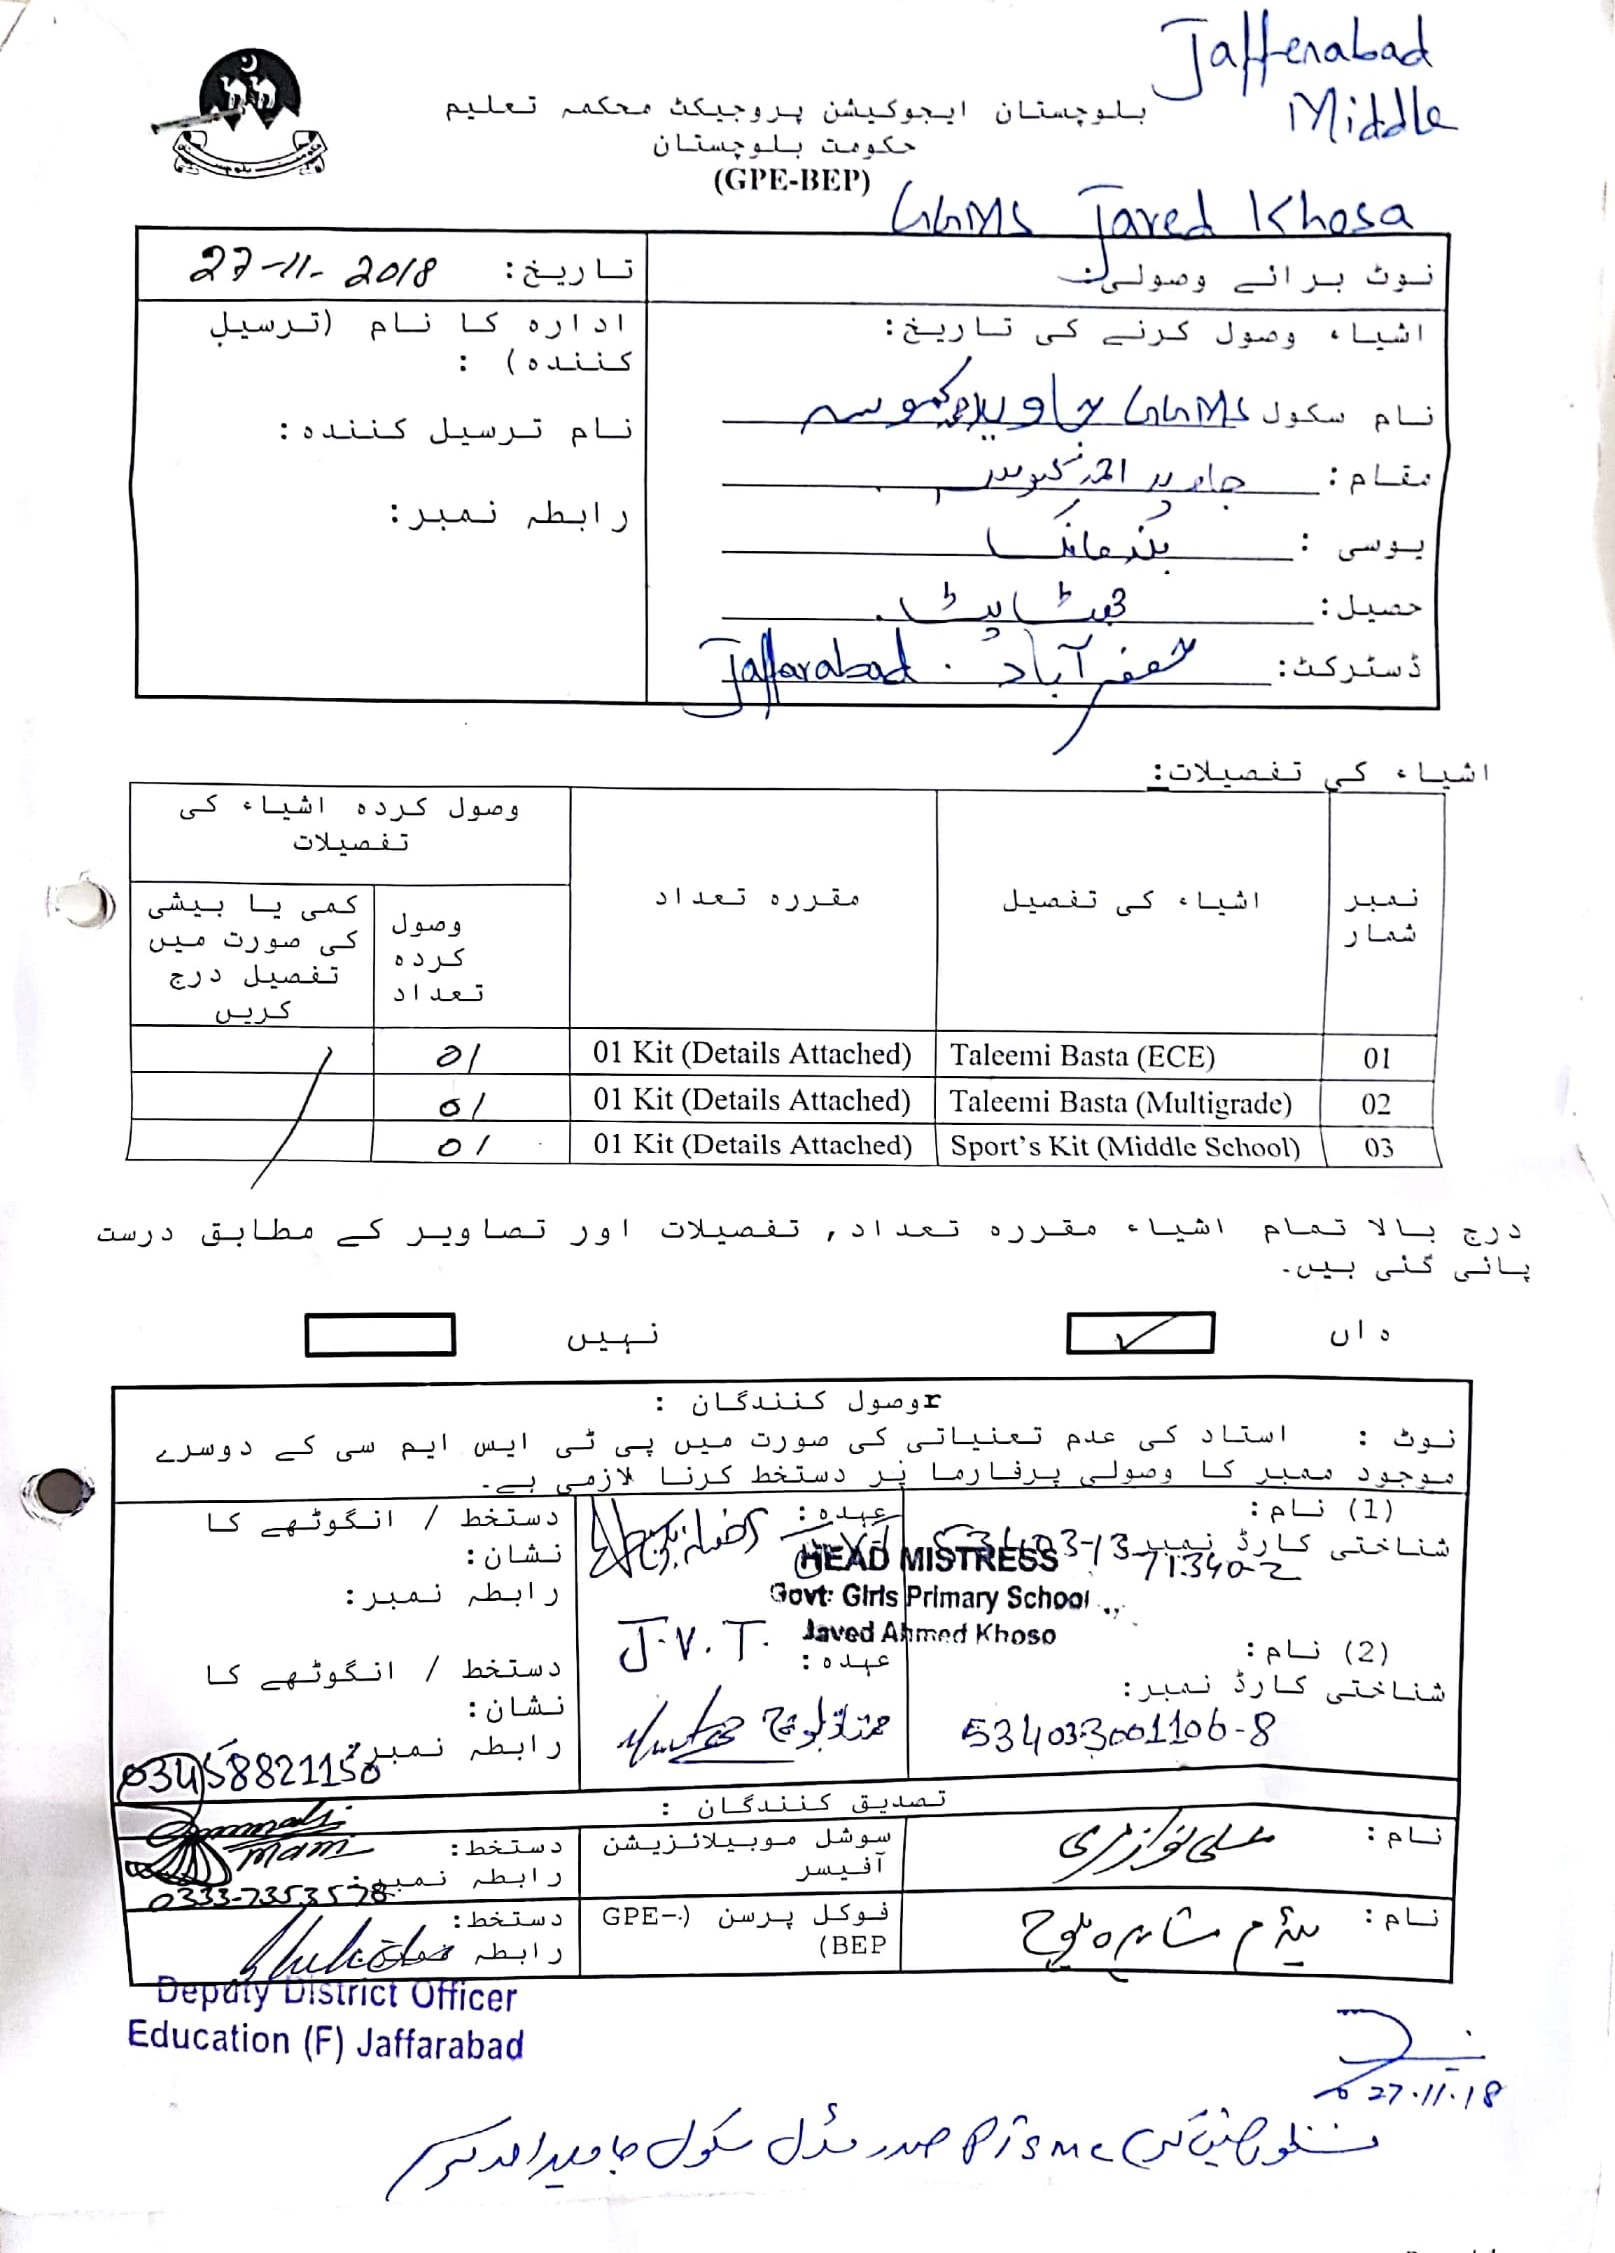 Jaffenabad
Middle
بلوچستان ایجوکیشن پروجیکٹ محکمہ تعلیم
حکومت بلوچستان
(GPE-BEP)
GGMS Javed Khosa
نوٹ برائے وصولی:
تاریخ: 27-11-2018
اشیاء وصول کرنے کی تاریخ:
ادارہ کا نام (ترسیل کنندہ) :
نام سکول GGMS جاوید کھوسہ
نام ترسیل کنندہ:
مقام: جاوید احمد کھوسہ
رابطہ نمبر:
یوسی :
حصیل: جھٹ پٹ
ڈسٹرکٹ: جعفر آباد Jaffarabad
اشیاء کی تفصیلات:
نمبر شمار
اشیاء کی تفصیل
مقررہ تعداد
وصول کردہ اشیاء کی تفصیلات
وصول کردہ تعداد
کمی یا بیشی کی صورت میں تفصیل درج کریں
01 Taleemi Basta (ECE) 01 Kit (Details Attached) 01
02 Taleemi Basta (Multigrade) 01 Kit (Details Attached) 01
03 Sport's Kit (Middle School) 01 Kit (Details Attached) 01
درج بالا تمام اشیاء مقررہ تعداد, تفصیلات اور تصاویر کے مطابق درست
پائی گئی ہیں۔
ہاں ✓ نہیں
rوصول کنندگان :
نوٹ : استاد کی عدم تعنیاتی کی صورت میں پی ٹی ایس ایم سی کے دوسرے
موجود ممبر کا وصولی پرفارما پر دستخط کرنا لازمی ہے۔
(1) نام:
عہدہ:
دستخط / انگوٹھے کا نشان:
شناختی کارڈ نمبر 53403-1371340-2
HEAD MISTRESS
Govt: Girls Primary School
Javed Ahmed Khoso
رابطہ نمبر:
J.V.T.
(2) نام:
عہدہ:
دستخط / انگوٹھے کا نشان:
شناختی کارڈ نمبر:
534033001106-8
رابطہ نمبر: 03458821150
تصدیق کنندگان :
نام: علی نواز مری
سوشل موبیلائزیشن آفیسر
دستخط:
رابطہ نمبر: 0333-7353578
نام: میڈم شاہدہ بلوچ
فوکل پرسن (GPE-BEP)
دستخط:
رابطہ
Deputy District Officer
Education (F) Jaffarabad
27.11.18
PTSMC صدر مڈل سکول جاوید احمد